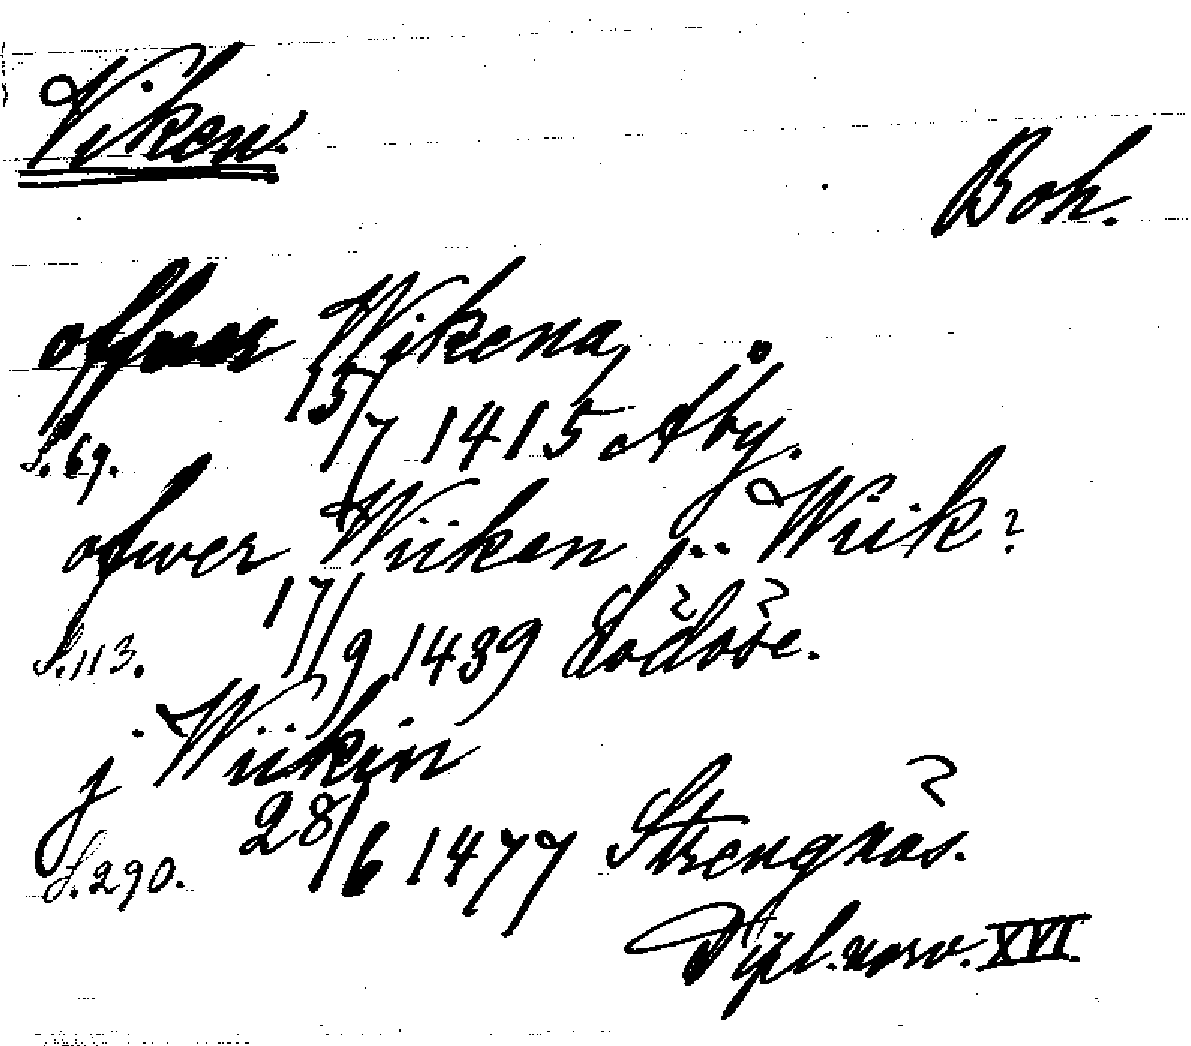 Viken.
Boh.
offuer Wikena,
S. 69. 15/7 1415 Åby.
ofwer Wiiken j .. Wiik?
S. 113. 17/9 1439 Lödöse.
j Wiikin
S. 290. 28/6 1477 Strengnäs.
Dipl. norv. XVI.